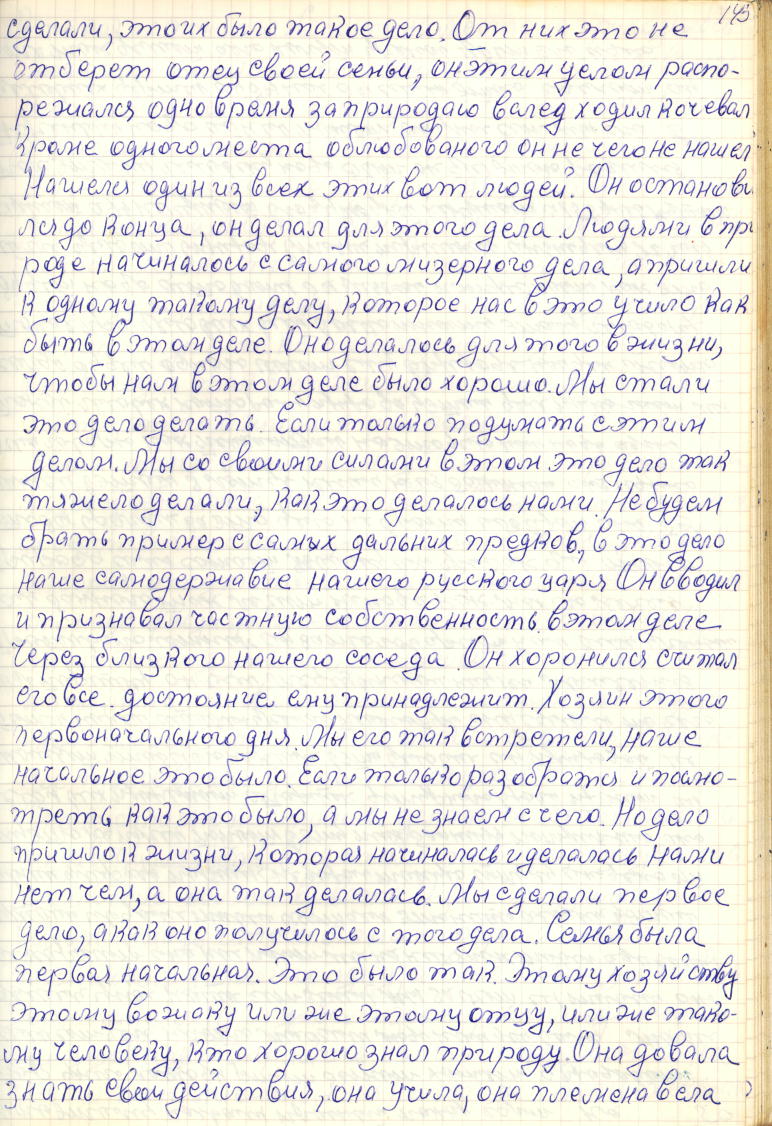 145
сделали, это их было такое дело. От них это не
отберет отец своей семьи, он этим целом распо-
режался одно время за природаю вслед ходил кочевал
Кроме одного места облюбованого он не чего не нашел
Нашелся один из всех этих вот людей. Он останови
лся до конца, он делал для этого дела. Людями в при
роде начиналось с самого мизерного дела, а пришли
к одному такому делу, которое нас в это учило как
быть в этом деле. Оно делалось для того в жизни,
чтобы нам в этом деле было хорошо. Мы стали
это дело делать. Если только подумать с этим
делом. Мы со своими силами в этом это дело так
тяжело делали, как это делалось нами. Не будем
брать пример с самых дальних предков, в это дело
наше самодержавие нашего русского царя Он вводил
и признавал частную собственность в этом деле
через близкого нашего соседа. Он хоронился считал
его все. достояние ему принадлежит. Хозяин этого
первоначального дня. Мы его так встретели, наше
начальное это было. Если только разобратся и посмо-
треть как это было, а мы не знаем с чего. Но дело
пришло к жизни, которая начиналась и делалась нами
нет чем, а она так делалась. Мы сделали первое
дело, а как оно получилось с того дела. Семья была
первая начальная. Это было так. Этому хозяйству
этому вожаку или же этому отцу, или же тако-
му человеку, кто хорошо знал природу. Она довала
знать свои действия, она учила, она племена вела